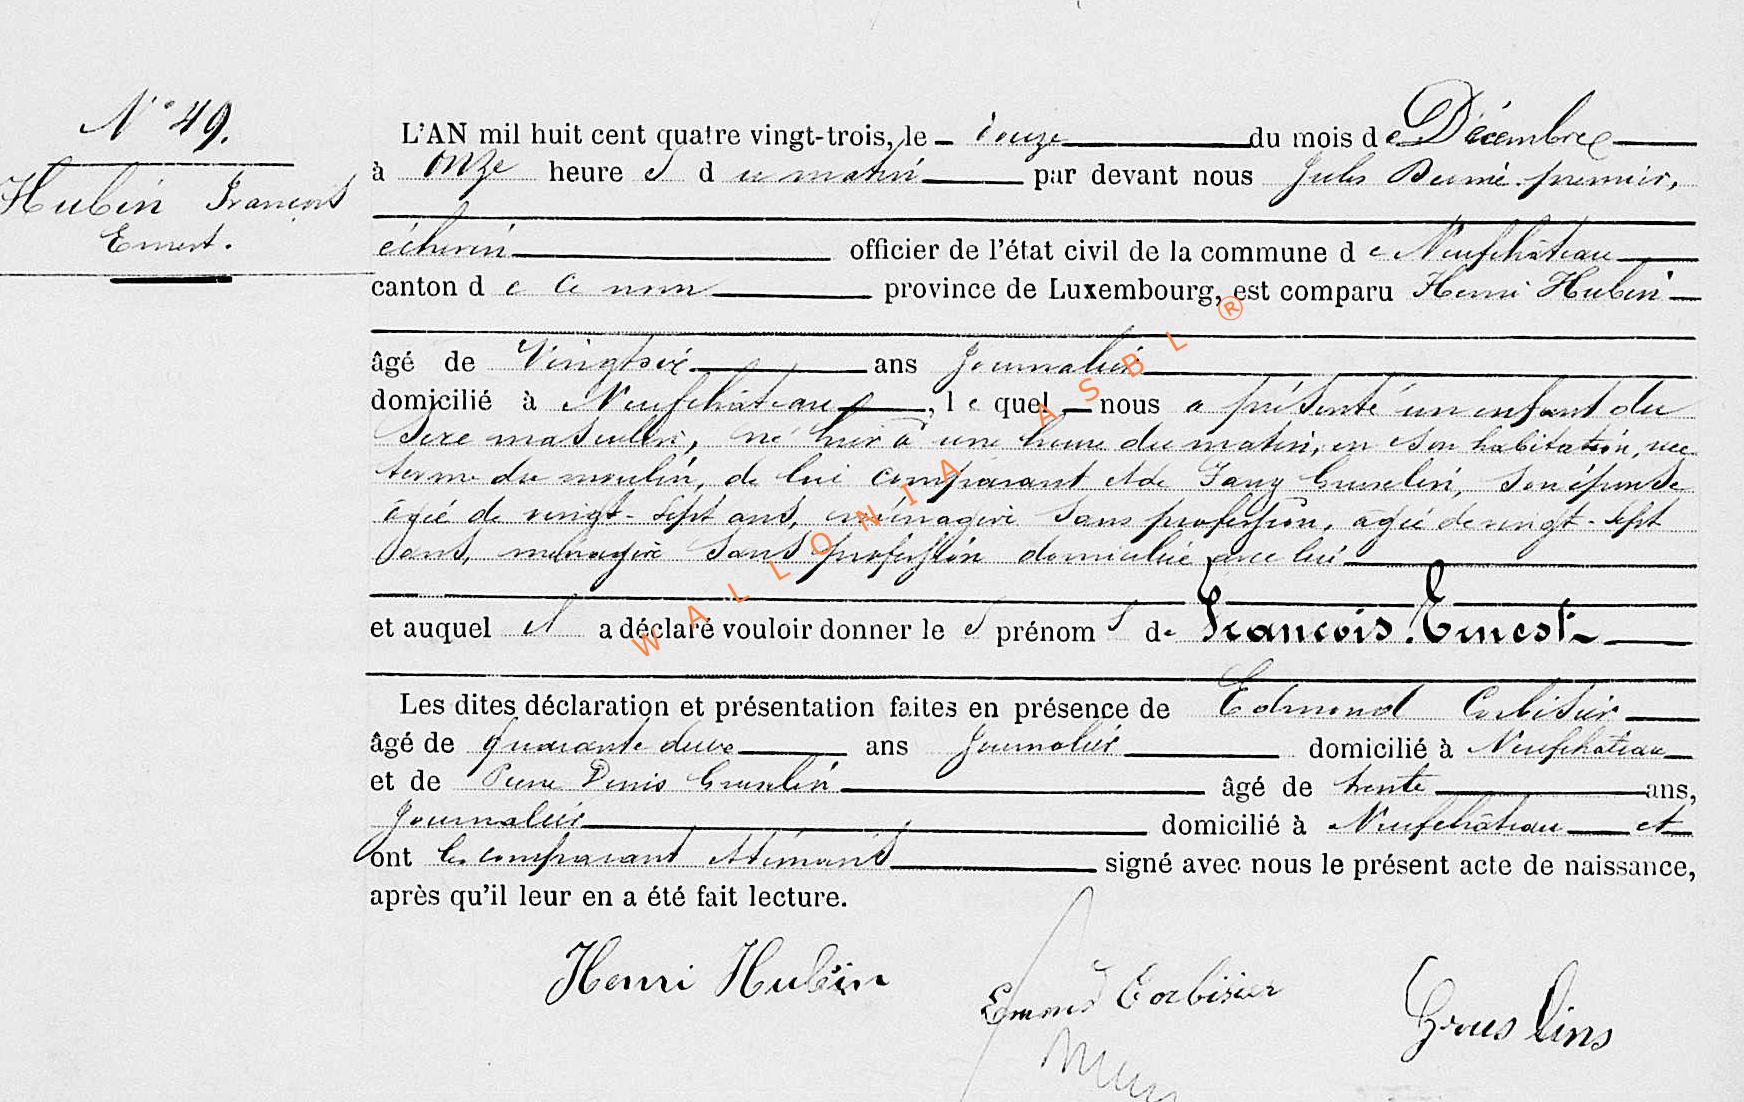 N° 49.
Hubin François
Ernest.
L'AN mil huit cent quatre vingt-trois, le douze du mois de Décembre
à onze heures du matin par devant nous Jules premier,
échevin officier de l'état civil de la commune de Neufchâteau
canton de ce nom province de Luxembourg, est comparu Henri Hubin
âgé de Vingt six ans journalier
domicilié à Neufchâteau, lequel nous a présenté un enfant du
sexe masculin, né hier à une heure du matin, en son habitation, rue
terme du moulin, de lui comparant et de Fany Gruselin, son épouse
âgée de vingt-sept ans, ménagère sans profession, âgée de vingt-sept
ans, ménagère sans profession domiciliée avec lui
et auquel il a déclaré vouloir donner les prénoms de François Ernest
Les dites déclaration et présentation faites en présence de Edmond Corbisier
âgé de quarante deux ans journalier domicilié à Neufchâteau
et de Pierre Denis Gruselin âgé de trente ans,
journalier domicilié à Neufchâteau et
ont les comparant et témoins signé avec nous le présent acte de naissance,
après qu'il leur en a été fait lecture.
Henri Hubin
Emond Corbisier
Grus lins
WALLONIA ASBL ®